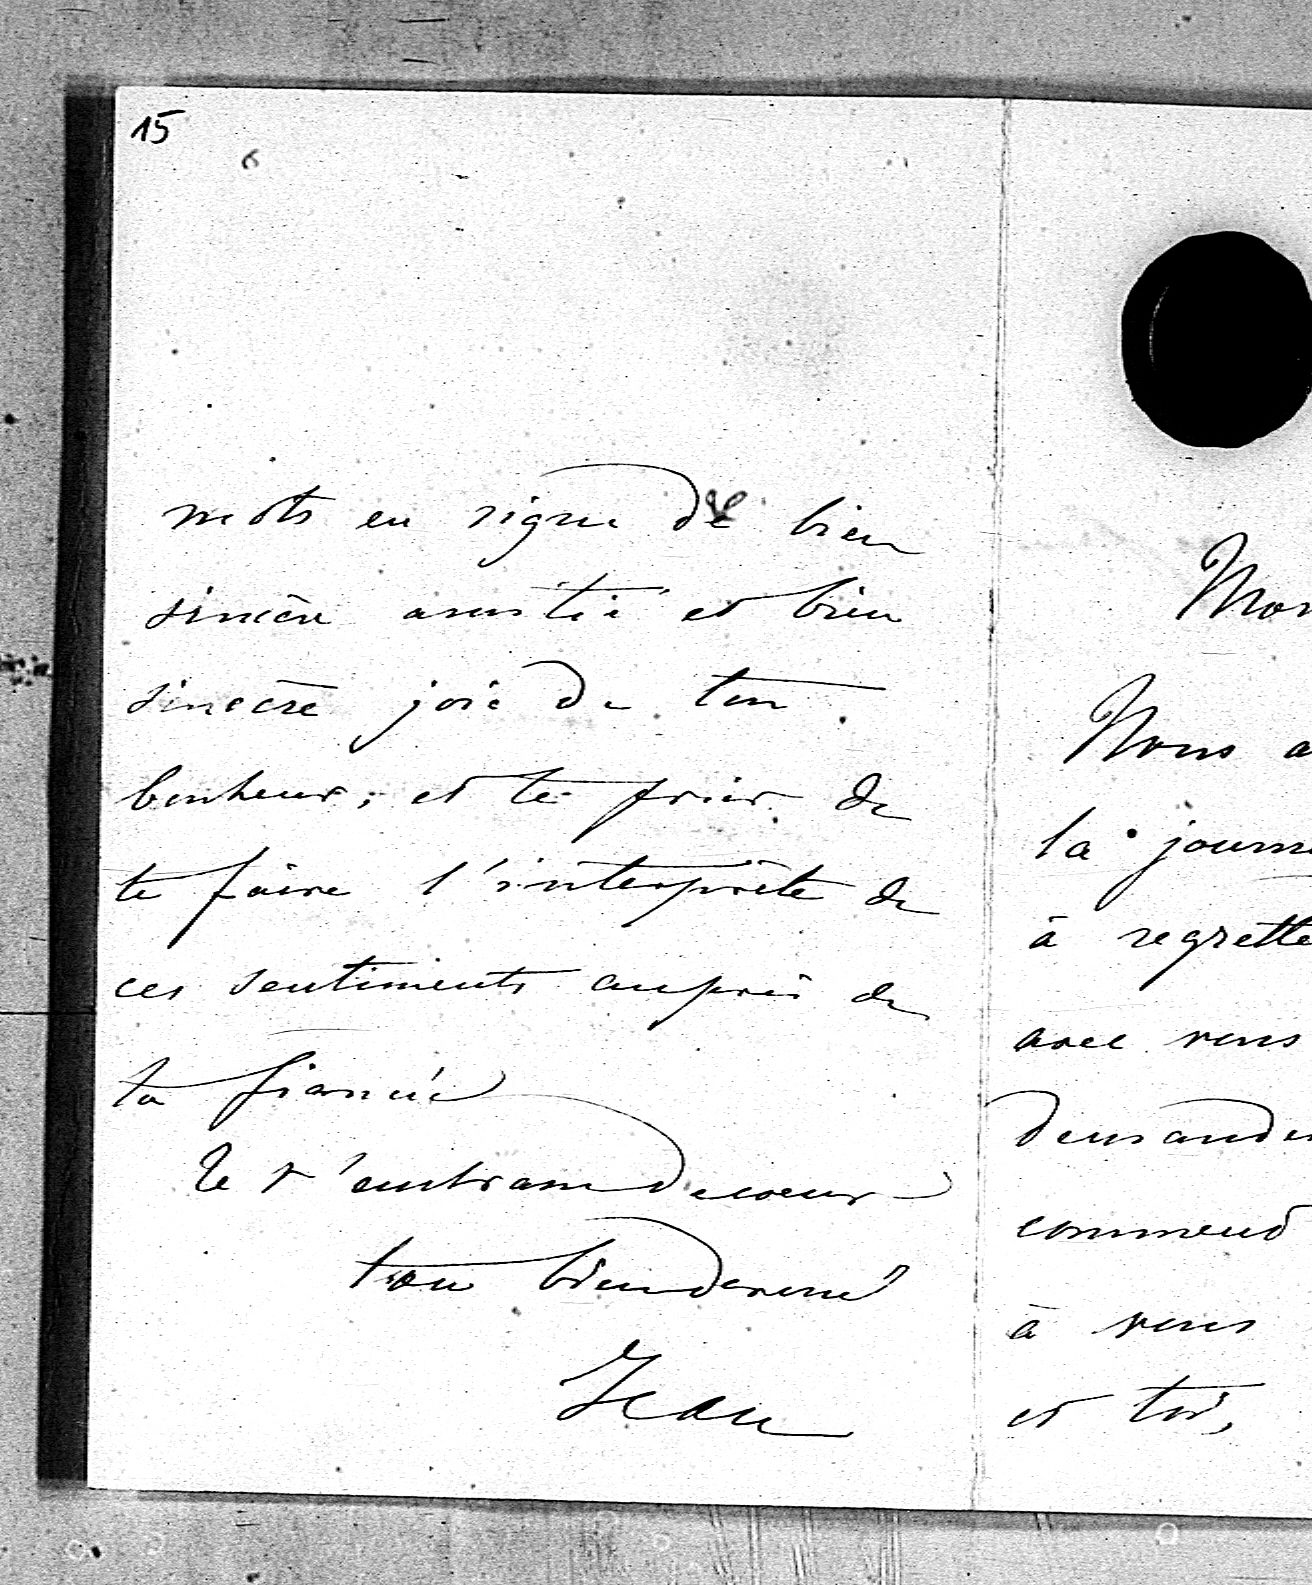 15
mots en signe de bien
sincère amitié et bien
sincère joie de ton
bonheur, et te prier de
te faire l'interprète de
ces sentiments auprès de
ta fiancée
Je t'embrasse de coeur
ton bien devoué
Jean
Mon
Nous a
la journé
à regrette
avec vous
demander
commend
à vous
et toi,